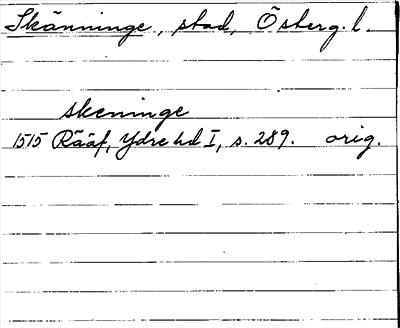 Skänninge, stad, Österg. l.
skeninge
1515 Rääf, Ydre hd I, s. 289. orig.